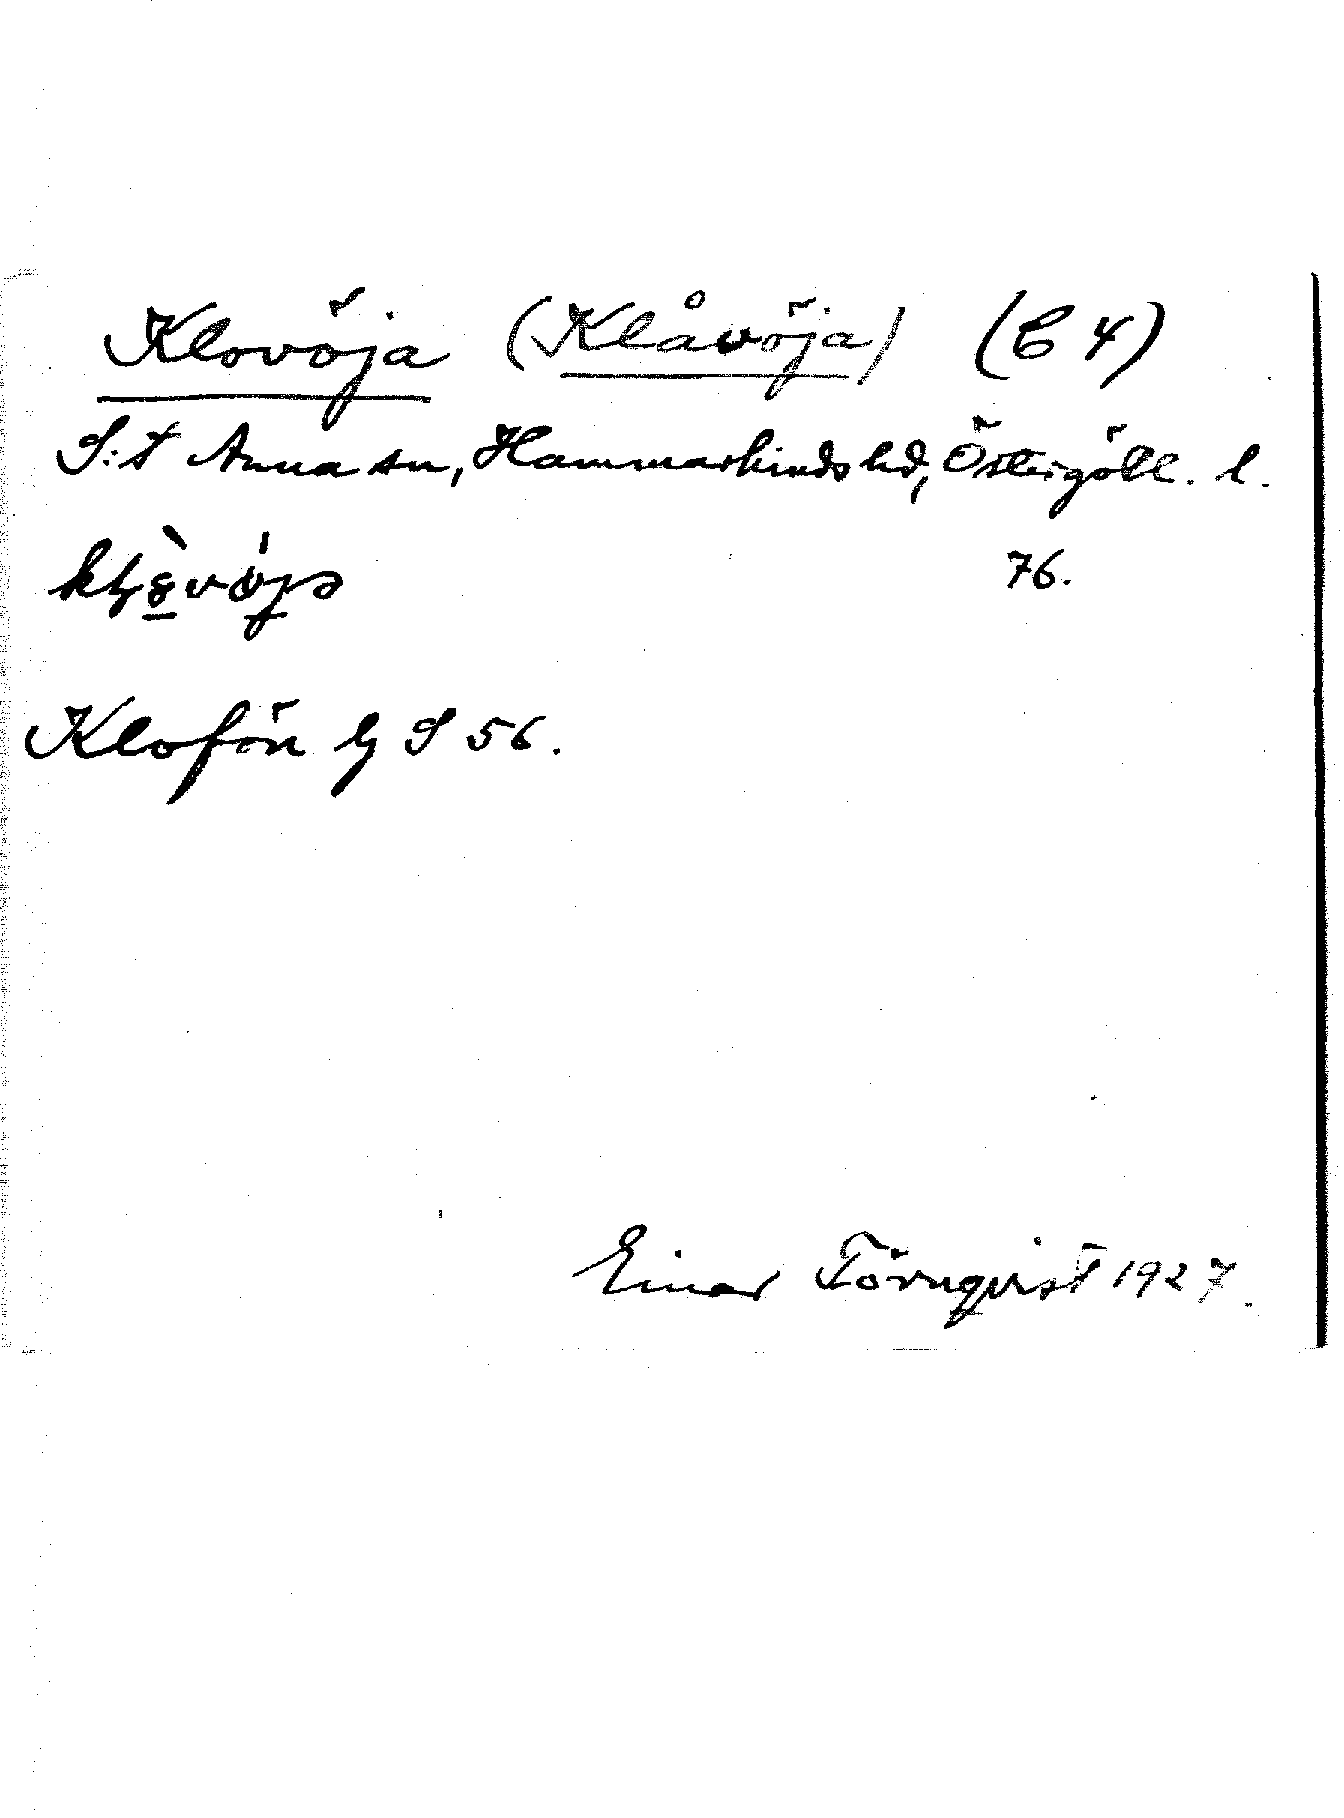 Klovöja (Klåvöja) (C 4)
S:t Anna sn, Hammarkinds hd, Östergötl. l.
76.
Klofön Lj S 56.
Einar Törnqvist 1927.